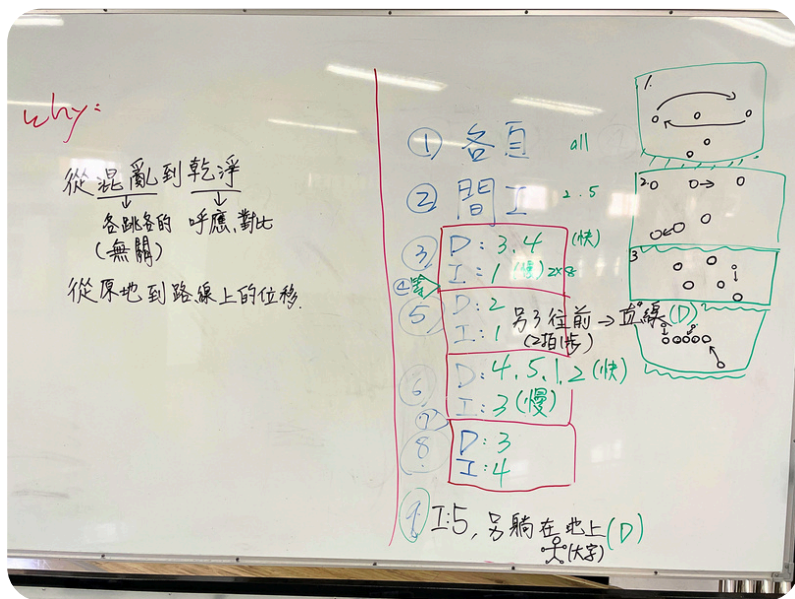 why:
從混亂到乾淨
各跳各的 呼應、對比
(無關)
從原地到路線上的位移.
① 各自 all
② 間 I 2.5
③ D: 3.4 (快)
I: 1 (慢) 2x8
⑤ D: 2
I: 1
另3往前→直線(D)
(2拍1步)
⑥ D: 4.5.1.2 (快)
I: 3 (慢)
⑦
⑧ D: 3
I: 4
I:5, 另躺在地上(D)
(大字)
1.
2.
3